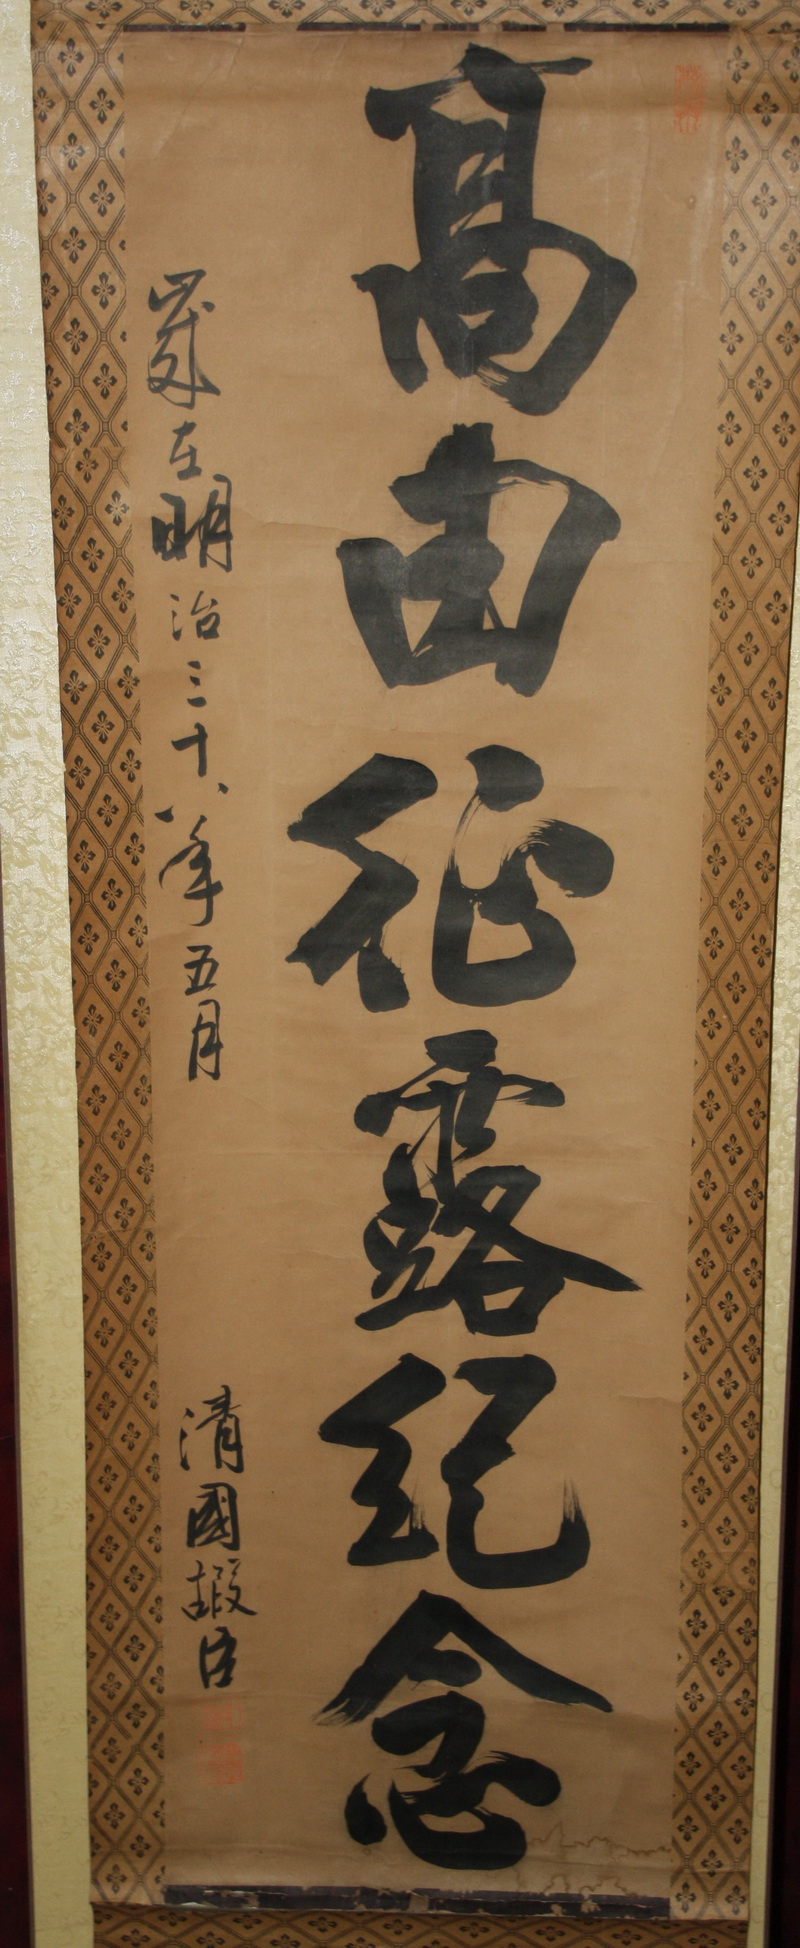 高由征露紀念
歳在明治三十八年五月
清國嘏臣